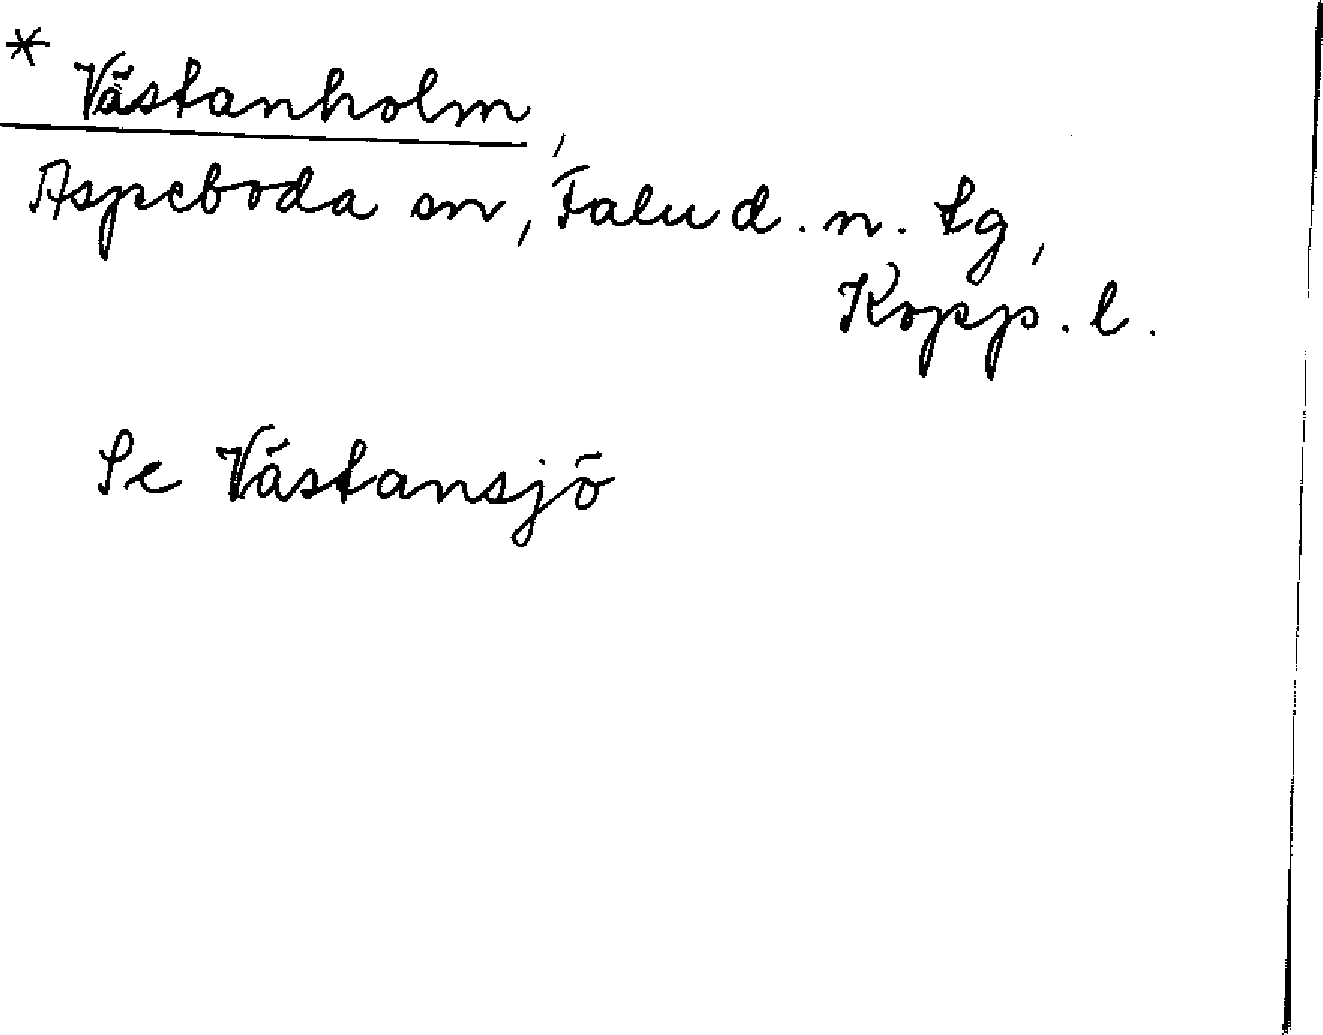 * Västanholm,
Aspeboda sn, Falu d. n. tg,
Kopp. l.
Se Västansjö